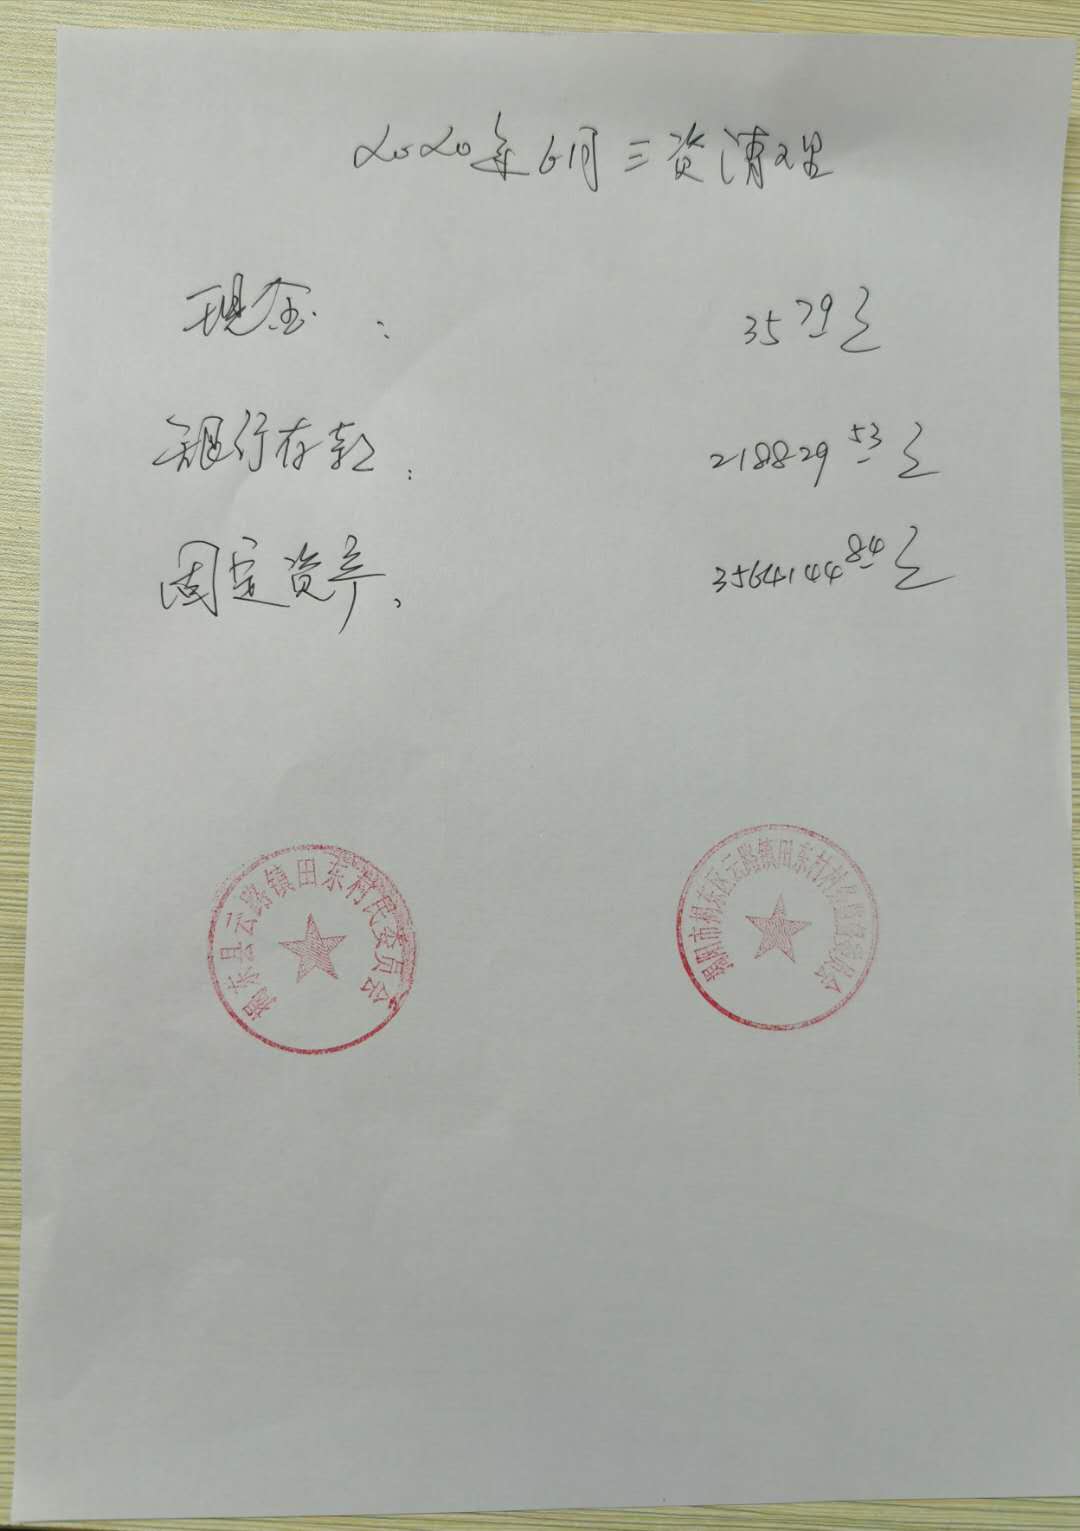 2020年6月三资清理
现金: 35.79元
银行存款: 218829.53元
固定资产: 3564144.84元
揭东县云路镇田东村民委员会
揭阳市揭东区云路镇田东村村务监督委员会